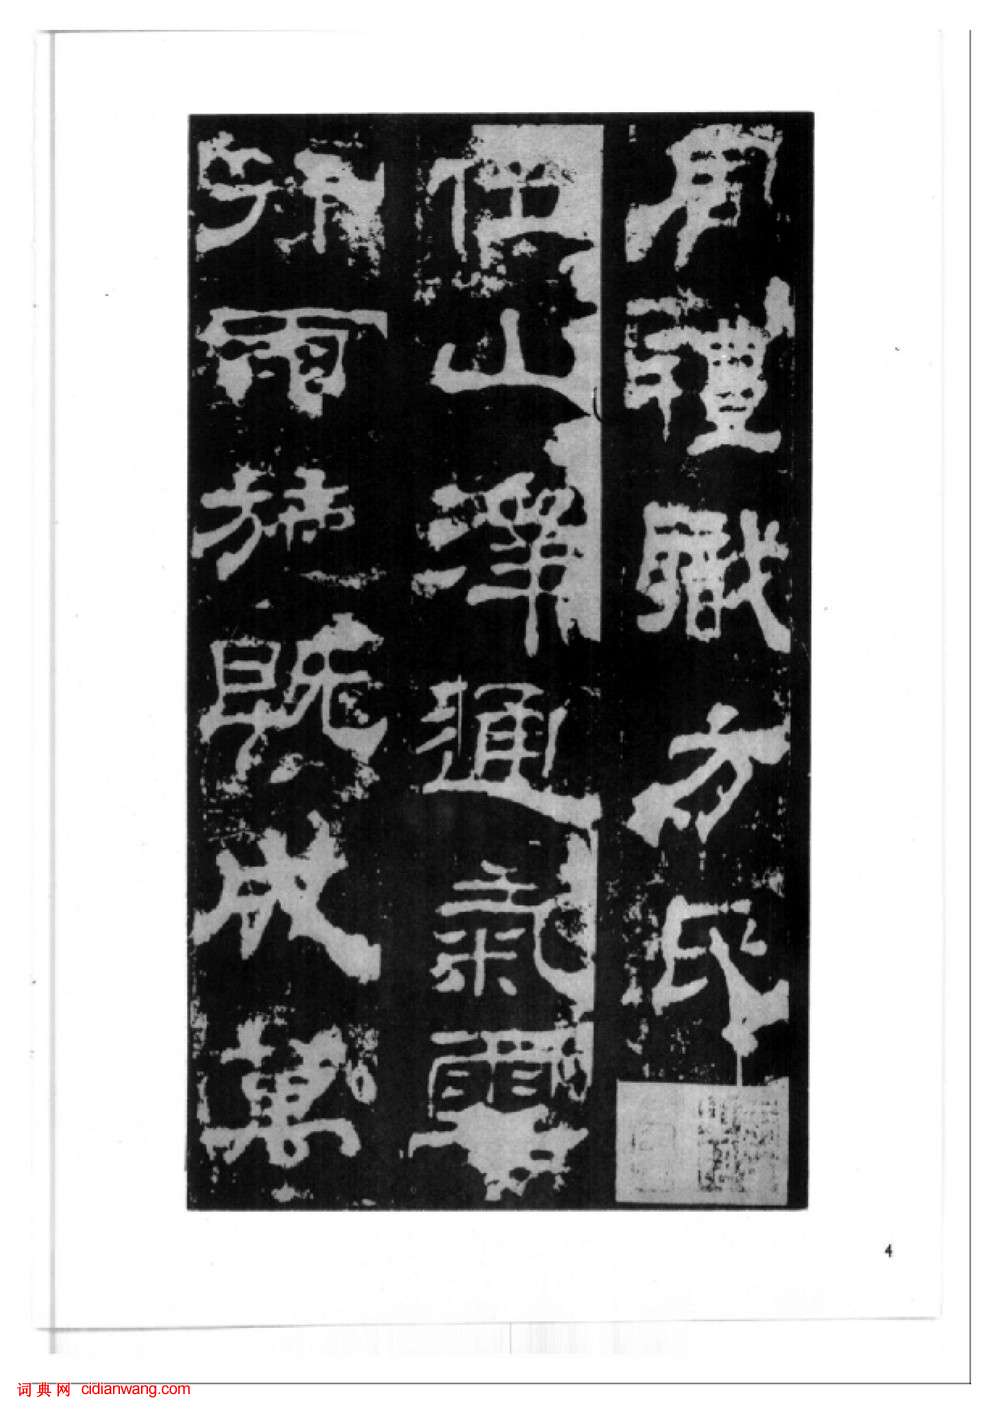 周禮職方氏
在山澤通氣雲
行雨施既成萬
4
词典网 cidianwang.com